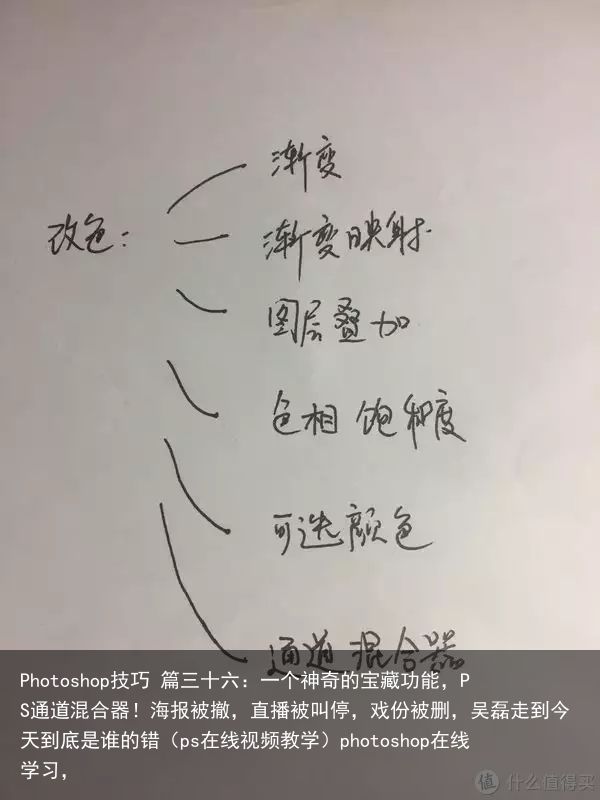 渐变
改色:
渐变映射
图层叠加
色相 饱和度
可选颜色
通道混合器
Photoshop技巧 篇三十六: 一个神奇的宝藏功能, P
S通道混合器! 海报被撤, 直播被叫停, 戏份被删, 吴磊走到今
天到底是谁的错 (ps在线视频教学) photoshop在线
学习,
值 什么值得买